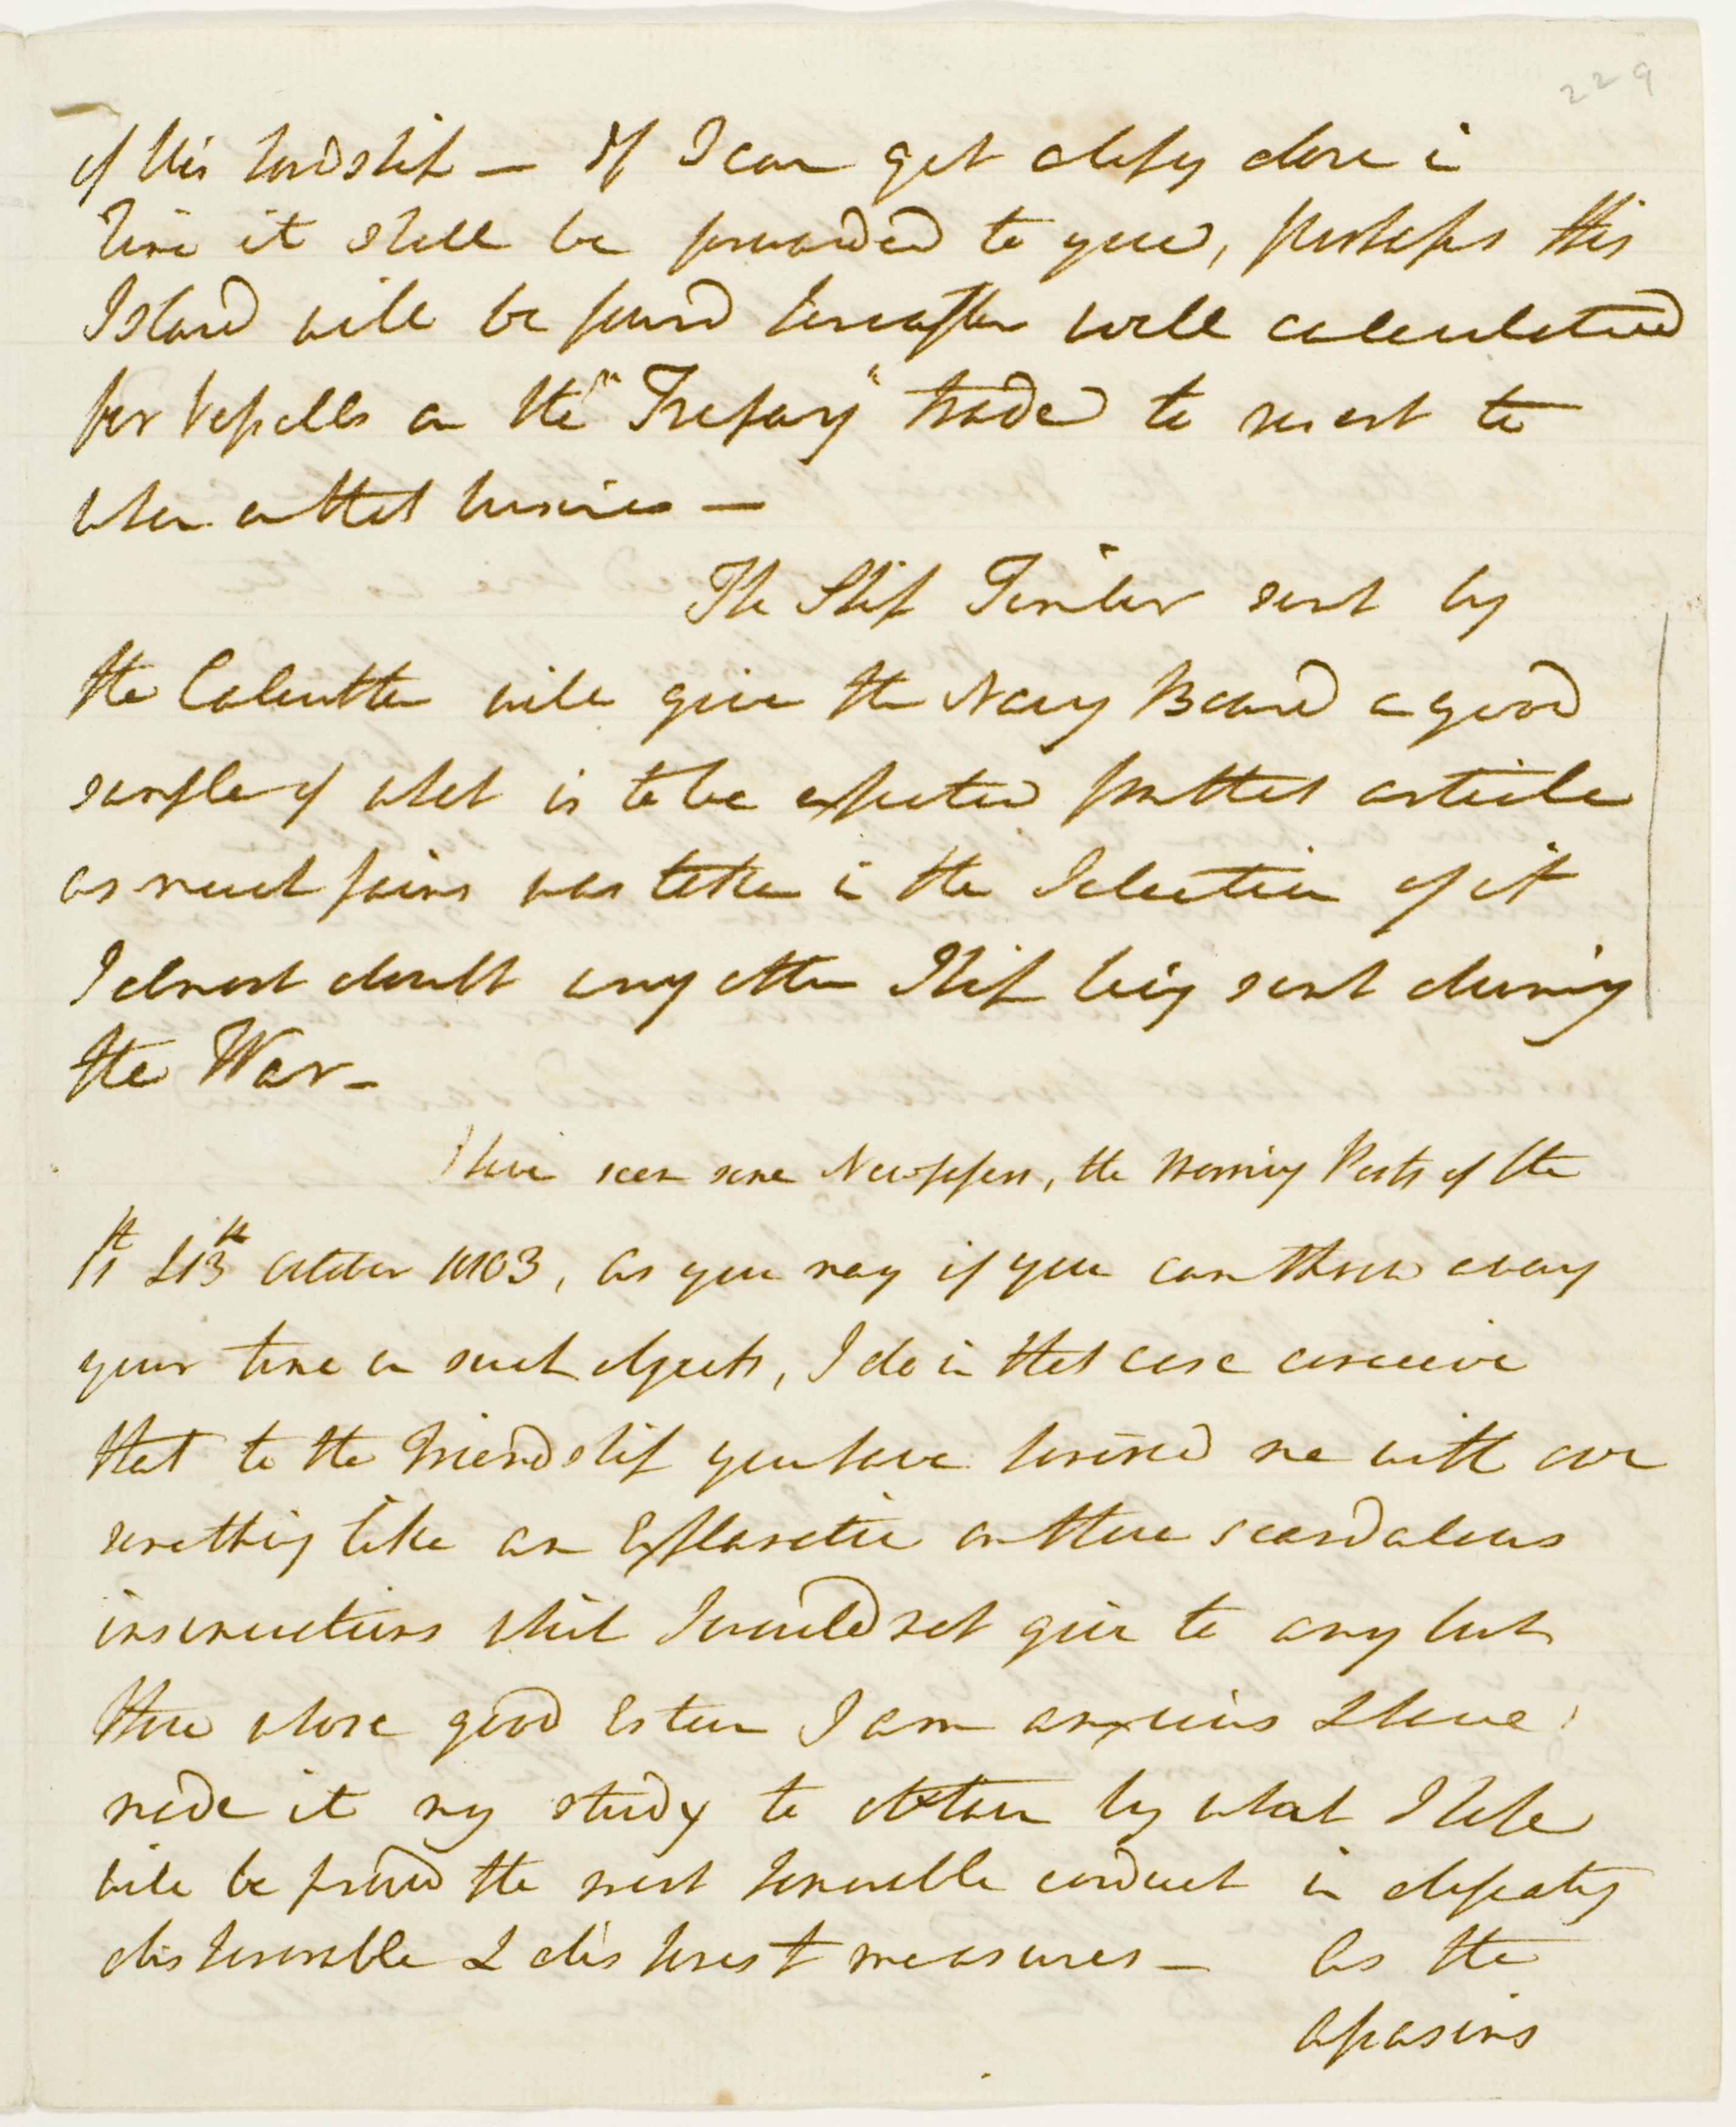 229
of His Lordship — If I can get a Copy done in
time it shall be forwarded to you, perhaps this
Island will be found hereafter well calculated
for Vessells on the "Tresury" trade to resort to
when on that business —
The Ship Timber sent by
the Calcutta will give the Navy Board a good
sample of what is to be expected from that article
as much pains was taken in the Selection of it
I almost doubt any other Ship being sent during
the War —
I have seen some Newspapers, the Morning Posts of the
11th & 13th October 1803, as you may if you can throw away
your time on such objects, I do in that case conceive
that to the Friendship you have honored me with
something like an Explanation on those scandalous
insinuations which I would not give to any but
those whose good Esteem I am anxious & have
made it my study to obtain by what I hope
will be proved the most honorable conduct in
dishonorable & dishonest measures — As the
aspersions